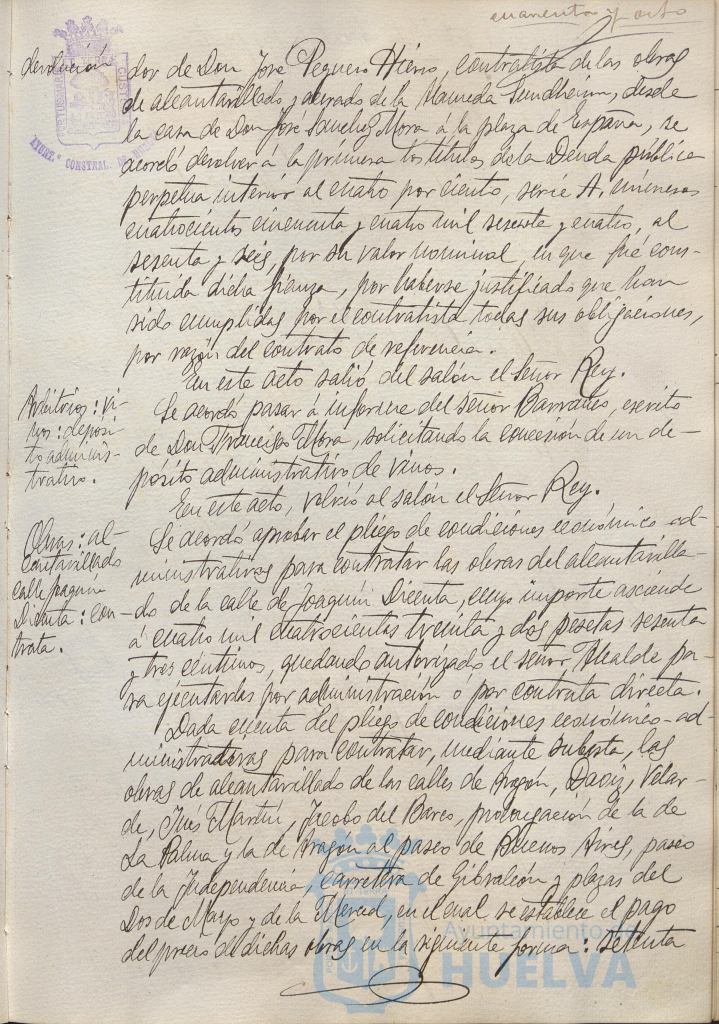 cuarenta y ocho
devolución
dor de Don José Peguero Hierro, contratista de las obras
de alcantarillado y acerado de la Alameda Sundheim, desde
la casa de Don José Sanchez Mora á la plaza de España, se
acordó devolver á la primera los títulos de la Deuda pública
perpetua interior al cuatro por ciento, serie A, números
cuatrocientos cincuenta y cuatro mil sesenta y cuatro, al
sesenta y seis, por su valor nominal, en que fué cons-
tituida dicha fianza, por haberse justificado que han
sido cumplidas por el contratista todas sus obligaciones,
por razón del contrato de referencia.
En este acto salió del salón el Señor Rey.
Arbitrios: vi-
nos: deposi-
to adminis-
trativo.
Se acordó pasar á informe del señor escrito
de Don Francisco Mora, solicitando la concesión de un de-
pósito administrativo de vinos.
En este acto, volvió al salón el Señor Rey.
Obras: al-
cantarillado
calle Joaquín
Dicenta: con-
trata.
Se acordó aprobar el pliego de condiciones económico-ad-
ministrativas para contratar las obras del alcantarilla-
do de la calle de Joaquín Dicenta, cuyo importe asciende
á cuatro mil cuatrocientas treinta y dos pesetas sesenta
y tres céntimos, quedando autorizado el señor Alcalde pa-
ra ejecutarlas por administración ó por contrata directa.
Dada cuenta del pliego de condiciones económico-ad-
ministrativas para contratar, mediante subasta, las
obras de alcantarillado de las calles de Aragón, Daoiz, Velar-
de, Inés Martín, Jacobo del Barco, prolongación de la de
La Palma y la de Aragón al paseo de Buenos Aires, paseo
de la Independencia, carretera de Gibraleón y plazas del
Dos de Mayo y de la Merced, en el cual se establece el pago
del precio de dichas obras en la siguiente forma: setenta
AYUNT.º CONSTNAL. DE HUELVA
Ayuntamiento de
HUELVA